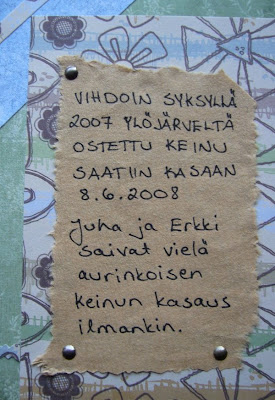 VIHDOIN SYKSYLLÄ
2007 YLÖJÄRVELTÄ
OSTETTU KEINU
SAATIIN KASAAN
8.6.2008
Juha ja Erkki
saivat vielä
aurinkoisen
keinun kasaus
ilmankin.